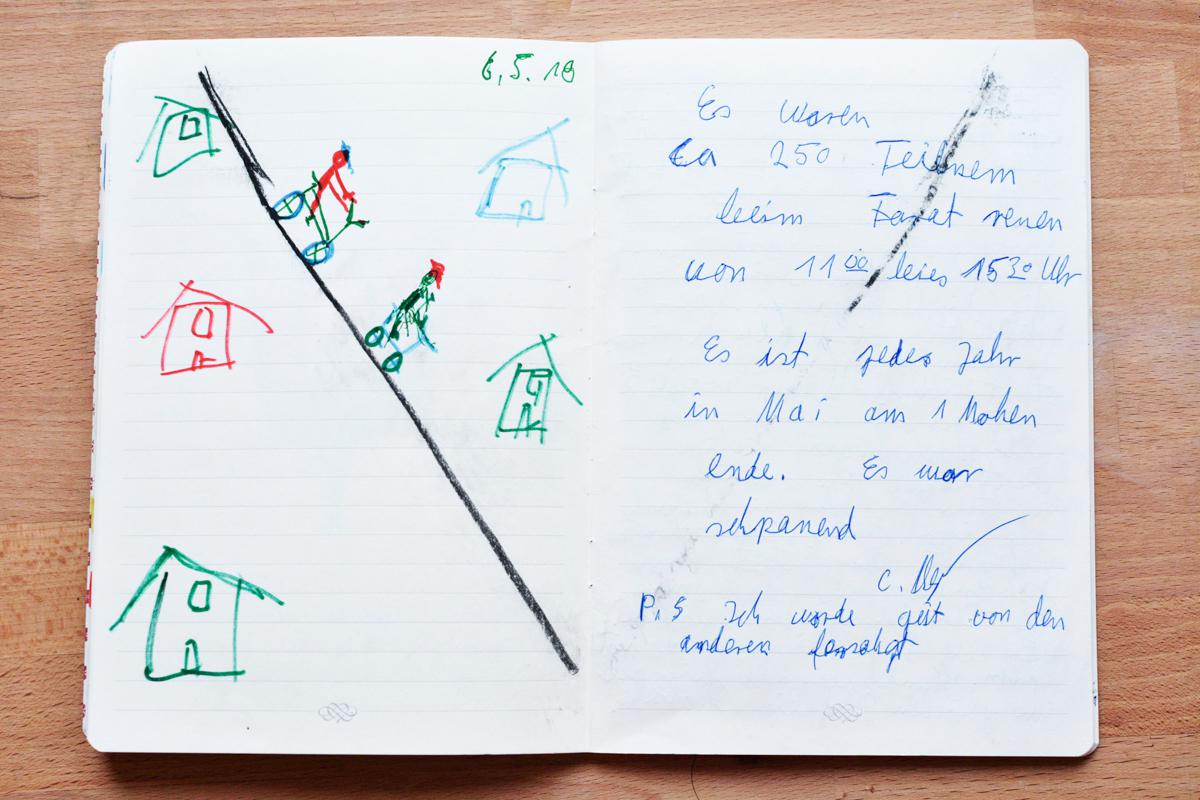 6.5.18
Es waren
Ca 250 Teilnem
beim Farat renen
von 11 00 bis 15 30 Uhr
Es ist jedes Jahr
in Mai am 1 Wohen
ende. Es war
schpanend
P.S Ich wurde gut von den
anderen